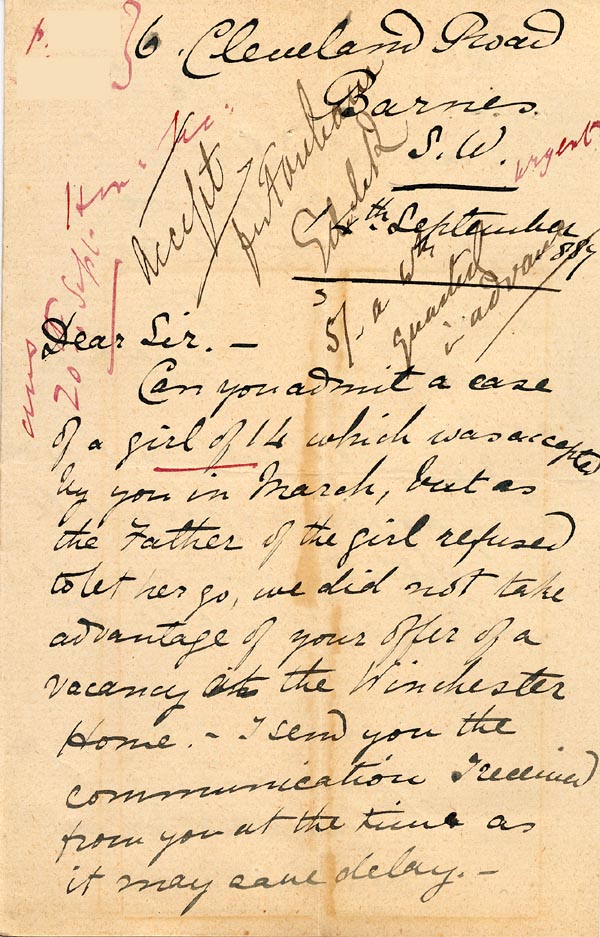 6. Cleveland Road
Barnes.
S.W.
urgent
4th September
Accept
for Fareham
5/- a wk
quarterly
in advance
ans
20 Sept.
Dear Sir. -
Can you admit a case
of a girl of 14 which was accepted
by you in March, but as
the Father of the girl refused
to let her go, we did not take
advantage of your offer of a
vacancy at the Winchester
Home. - I send you the
communication I received
from you at the time as
it may save delay. -